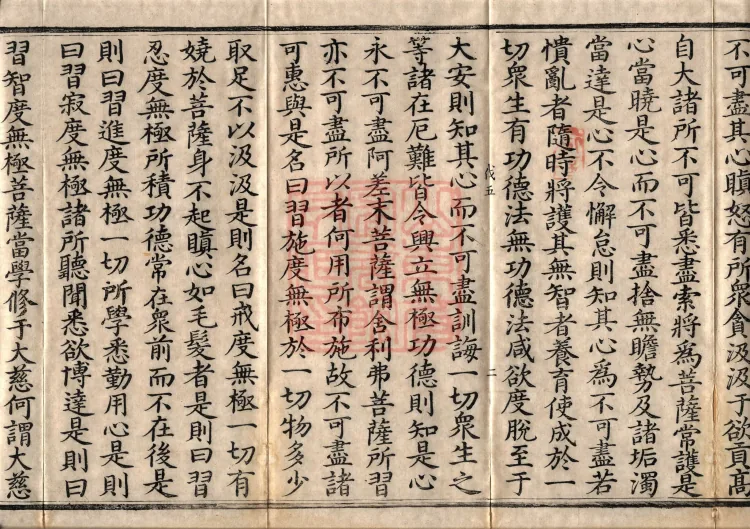 不可盡其心瞋怒有所衆貪汲汲于欲貢高
自大諸所不可皆悉盡索將為菩薩常護是
心當曉是心而不可盡捨無瞻勢及諸垢濁
當達是心不令懈怠則知其心為不可盡若
憒亂者隨時將護其無智者養育使成於一
切衆生有功德法無功德法咸欲度脫至于
大安則知其心而不可盡訓誨一切衆生之
等諸在厄難皆令興立無極功德則知是心
永不可盡阿差末菩薩謂舍利弗菩薩所習
亦不可盡所以者何用所布施故不可盡諸
可惠與是名曰習施度無極於一切物多少
取足不以汲汲是則名曰戒度無極一切有
嬈於菩薩身不起瞋心如毛髮者是則曰習
忍度無極所積功德常在衆前而不在後是
則曰習進度無極一切所學悉勤用心是則
曰習寂度無極諸所聽聞悉欲博達是則曰
習智度無極菩薩當學修于大慈何謂大慈
二